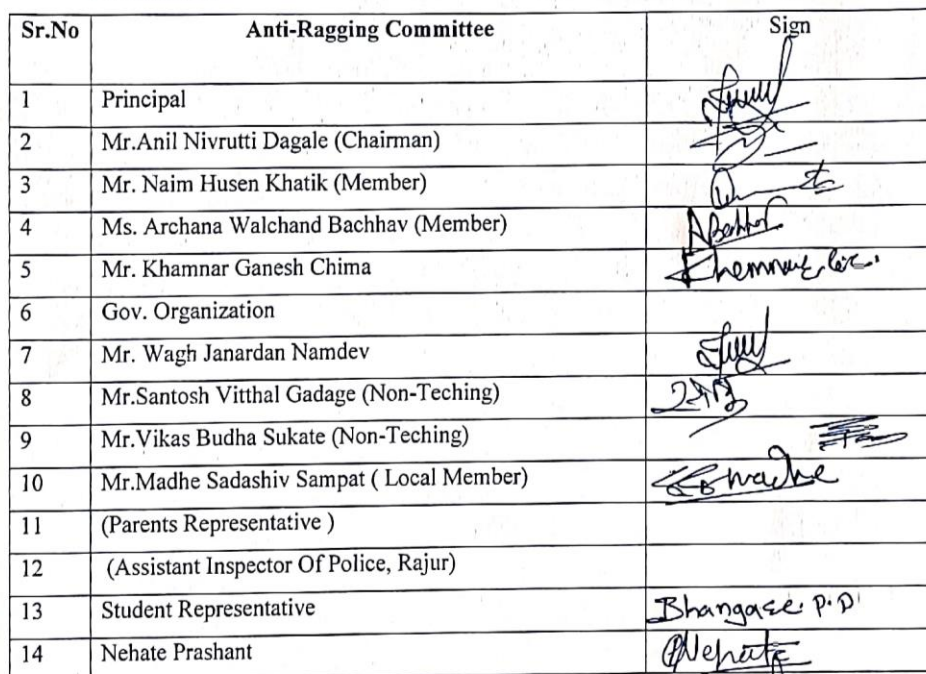 Sr.No Anti-Ragging Committee Sign
1 Principal
2 Mr.Anil Nivrutti Dagale (Chairman)
3 Mr. Naim Husen Khatik (Member)
4 Ms. Archana Walchand Bachhav (Member) ABachhav
5 Mr. Khamnar Ganesh Chima
6 Gov. Organization
7 Mr. Wagh Janardan Namdev
8 Mr.Santosh Vitthal Gadage (Non-Teching)
9 Mr.Vikas Budha Sukate (Non-Teching)
10 Mr.Madhe Sadashiv Sampat ( Local Member)
11 (Parents Representative )
12 (Assistant Inspector Of Police, Rajur)
13 Student Representative Bhangare P.D
14 Nehate Prashant PNehate